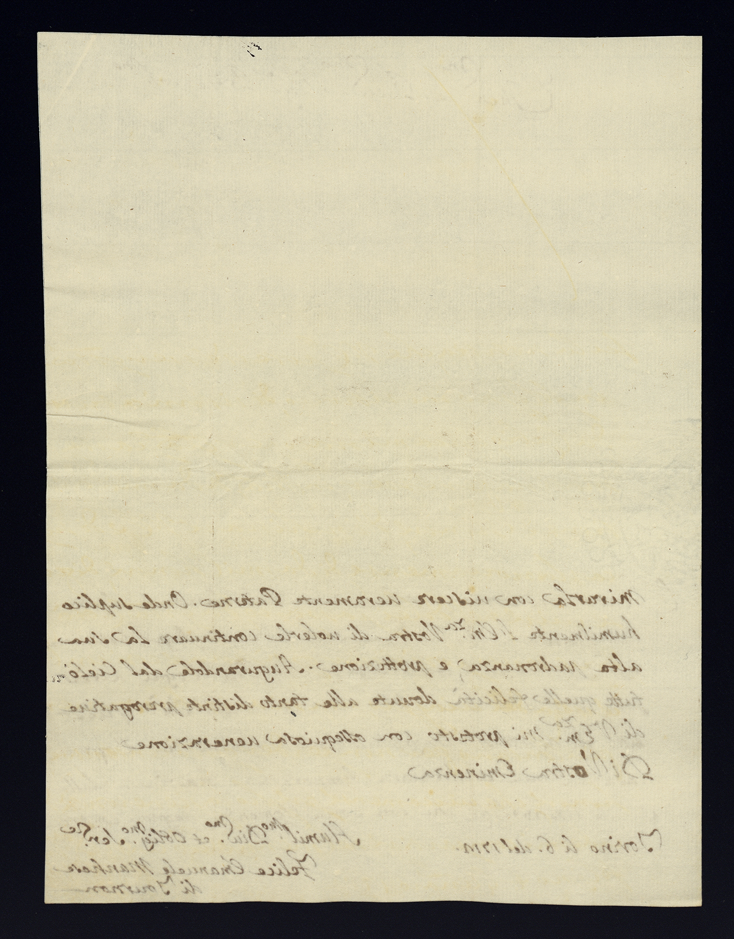 mirarla con viscere veramente Paterne. Onde suplico
humilmente l'Em.za Vostra di volerle continuare la sua
alta padronanza, e protezione. Augurandole dal Cielo
tutte quelle felicità dovute alle tanto distinte prerogative
di V. Em.za mi protesto con ossequiosa venerazione
Di Vostra Eminenza
Torino li 6. del 1710.
Humil.mo Div.mo et Oblig.mo Ser.re
Felice Emanuele Marchese
di Tournon